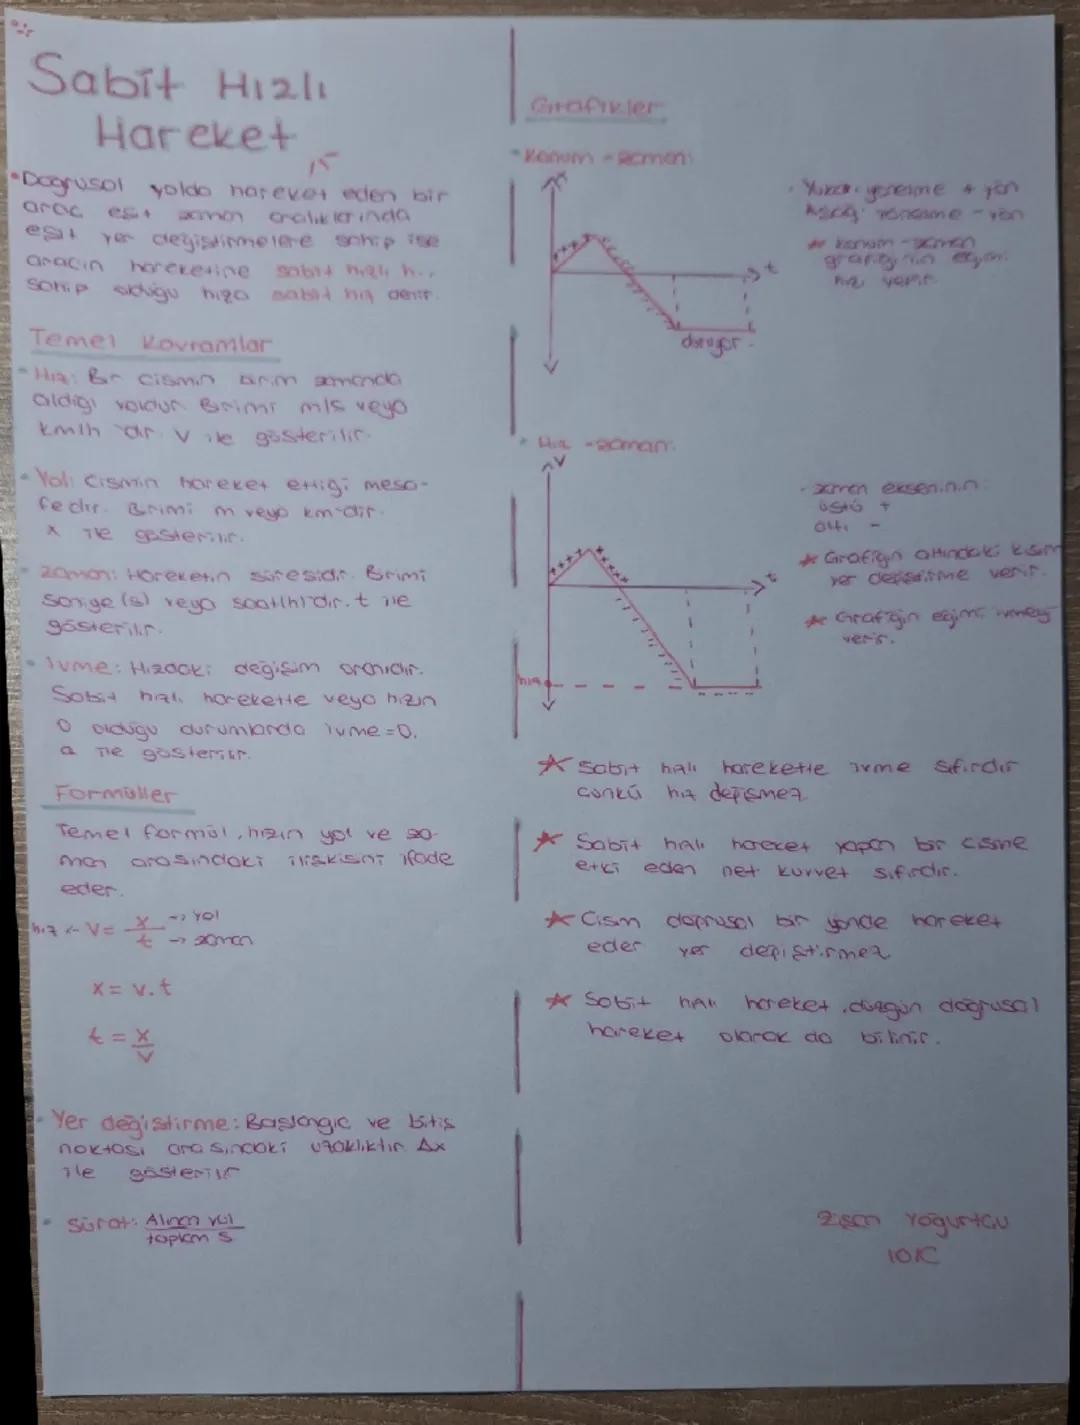 Sabit Hızlı
Hareket
15
• Doğrusal yolda hareket eden bir
araç eşit zaman aralıklarında
eşit yer değiştirmelere sahip ise
aracın hareketine sabit hızlı h..
sahip olduğu hıza sabit hız denir.
Temel Kavramlar
• Hız: Bir cismin birim zamanda
aldığı yoldur. Birimi m/s veya
km/h 'dir. V ile gösterilir.
• Yol: Cismin hareket ettiği mesa-
fedir. Birimi m veya km'dir.
x ile gösterilir.
• Zaman: Hareketin süresidir. Birimi
saniye (s) veya saat(h)'dir. t ile
gösterilir.
• İvme: Hızdaki değişim oranıdır.
Sabit hızlı harekette veya hızın
0 olduğu durumlarda ivme=0.
a ile gösterilir.
Formüller
Temel formül, hızın yol ve za-
man arasındaki ilişkisini ifade
eder.
hız <- V = x/t -> yol -> zaman
x = v.t
t = x/v
• Yer değiştirme: Başlangıç ve bitiş
noktası arasındaki uzaklıktır. Δx
ile gösterilir
• Sürat: Alınan yol
toplam s
Grafikler
• Konum - zaman:
x
++++
t
duruyor.
• Yukarı yönelme + yön
Aşağı yönelme - yön
* konum-zaman
grafiğinin eğimi
hız verir.
• Hız - zaman:
V
++++ ++++
t
hız
- zaman ekseninin:
üstü +
altı -
* Grafiğin altındaki kısım
yer değiştirme verir.
* Grafiğin eğimi ivmeyi
verir.
* Sabit hızlı harekette ivme sıfırdır
çünkü hız değişmez.
* Sabit hızlı hareket yapan bir cisme
etki eden net kuvvet sıfırdır.
* Cisim doğrusal bir yönde hareket
eder yer değiştirmez.
* Sabit hızlı hareket, düzgün doğrusal
hareket olarak da bilinir.
Yoğurtcu
10/C